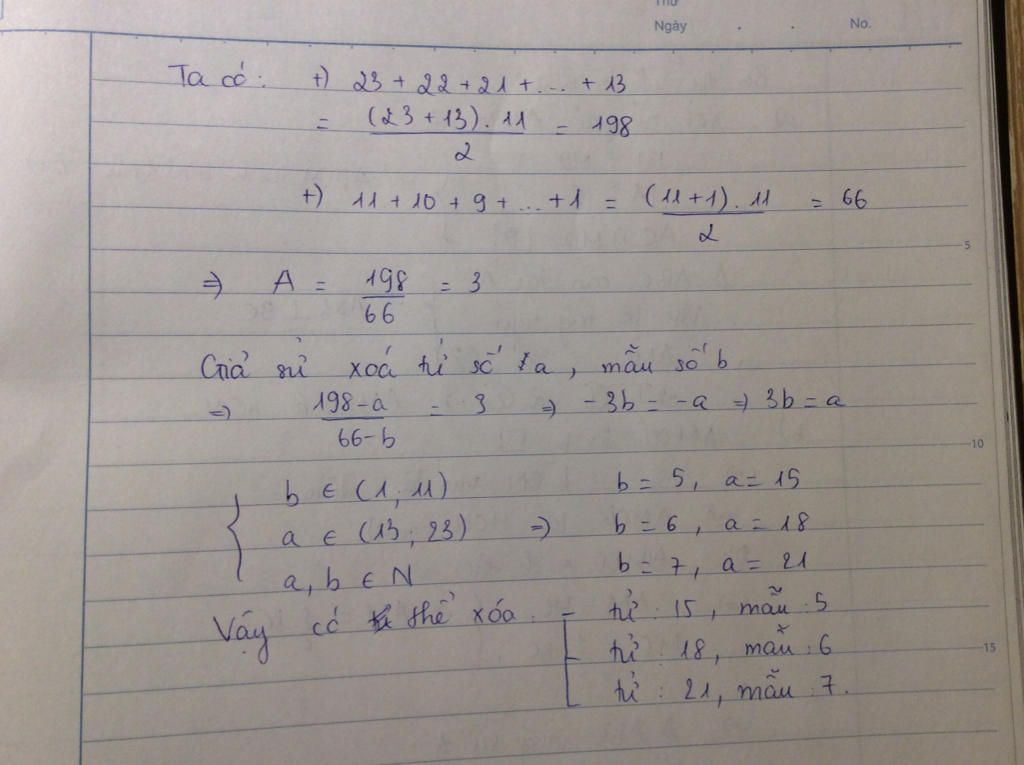 Thứ
Ngày . . No.
Ta có: +) 23 + 22 + 21 + ... + 13
= (23 + 13) . 11 / 2 = 198
+) 11 + 10 + 9 + ... + 1 = (11 + 1) . 11 / 2 = 66
5
⇒ A = 198 / 66 = 3
Giả sử xoá tử số a, mẫu số b
⇒ 198 - a / 66 - b = 3 ⇒ -3b = -a ⇒ 3b = a
10
{ b ∈ (1; 11) b = 5, a = 15
a ∈ (13; 23) ⇒ b = 6, a = 18
a, b ∈ N b = 7, a = 21
Vậy có thể xóa: - tử: 15, mẫu: 5
- tử: 18, mẫu: 6
15
tử: 21, mẫu: 7.